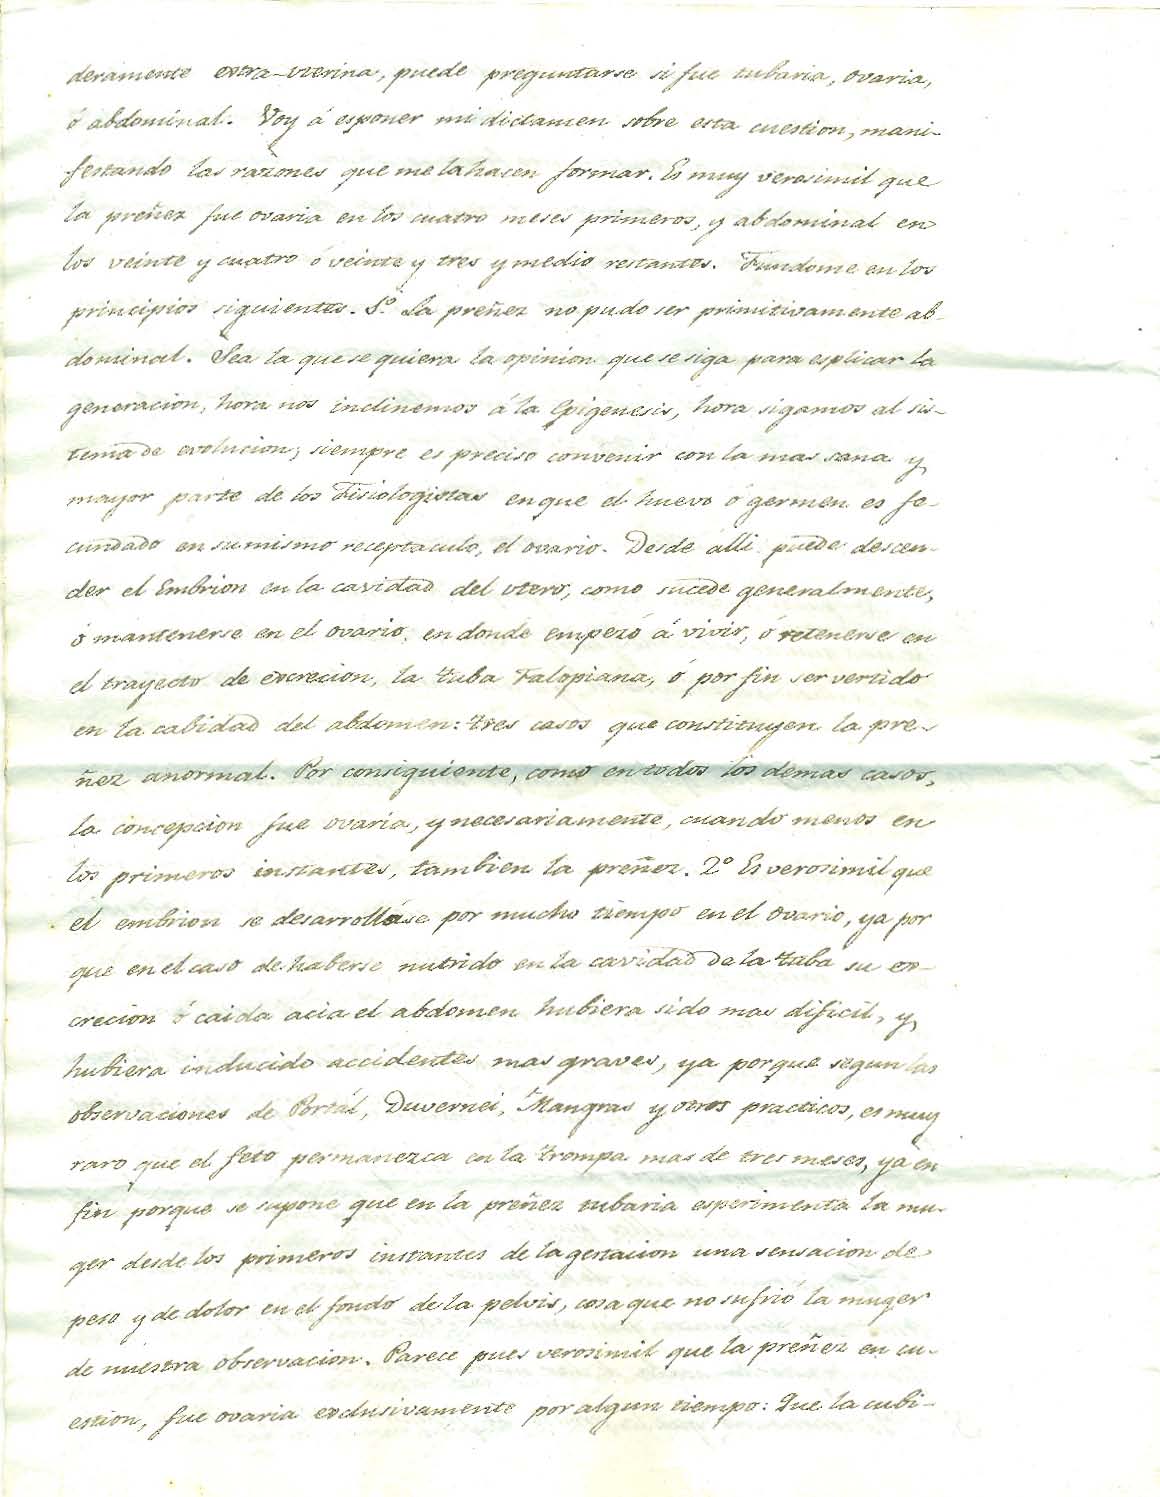 deramente extra-uterina, puede preguntarse si fue tubaria, ovaria,
ó abdominal. Voy á esponer mi dictamen sobre esta cuestion, mani-
festando las razones que me la hacen formar. Es muy verosimil que
la preñez fue ovaria en los cuatro meses primeros, y abdominal en
los veinte y cuatro ó veinte y tres y medio restantes. Fundome en los
principios siguientes. 1º La preñez no pudo ser primitivamente ab-
dominal. Sea la que se quiera la opinion que se siga para esplicar la
generacion, hora nos inclinemos á la Epigenesis, hora sigamos al sis-
tema de evolucion; siempre es preciso convenir con la mas sana y
mayor parte de los Fisiologistas en que el huevo ó germen es fe-
cundado en su mismo receptaculo, el ovario. Desde alli puede descen-
der el Embrion en la cavidad del utero, como sucede generalmente,
ó mantenerse en el ovario, en donde empezó á vivir, ó retenerse en
el trayecto de excrecion, la tuba Falopiana, ó por fin ser vertido
en la cabidad del abdomen: tres casos que constituyen la pre-
ñez anormal. Por consiguiente, como en todos los demas casos,
la concepcion fue ovaria, y necesariamente, cuando menos en
los primeros instantes, tambien la preñez. 2º Es verosimil que
el embrion se desarrollase por mucho tiempo en el ovario, ya por
que en el caso de haberse nutrido en la cavidad de la tuba su ex-
crecion ó caida acia el abdomen hubiera sido mas dificil, y
hubiera inducido accidentes mas graves, ya porque segun las
observaciones de Portál, Duvernei, Mangras y otros practicos, es muy
raro que el feto permanezca en la trompa mas de tres meses, ya en
fin porque se supone que en la preñez tubaria esperimenta la mu-
ger desde los primeros instantes de la gestacion una sensacion de
peso y de dolor en el fondo de la pelvis, cosa que no sufrió la muger
de nuestra observacion. Parece pues verosimil que la preñez en cu-
estion, fue ovaria exclusivamente por algun tiempo: Que la cubi-